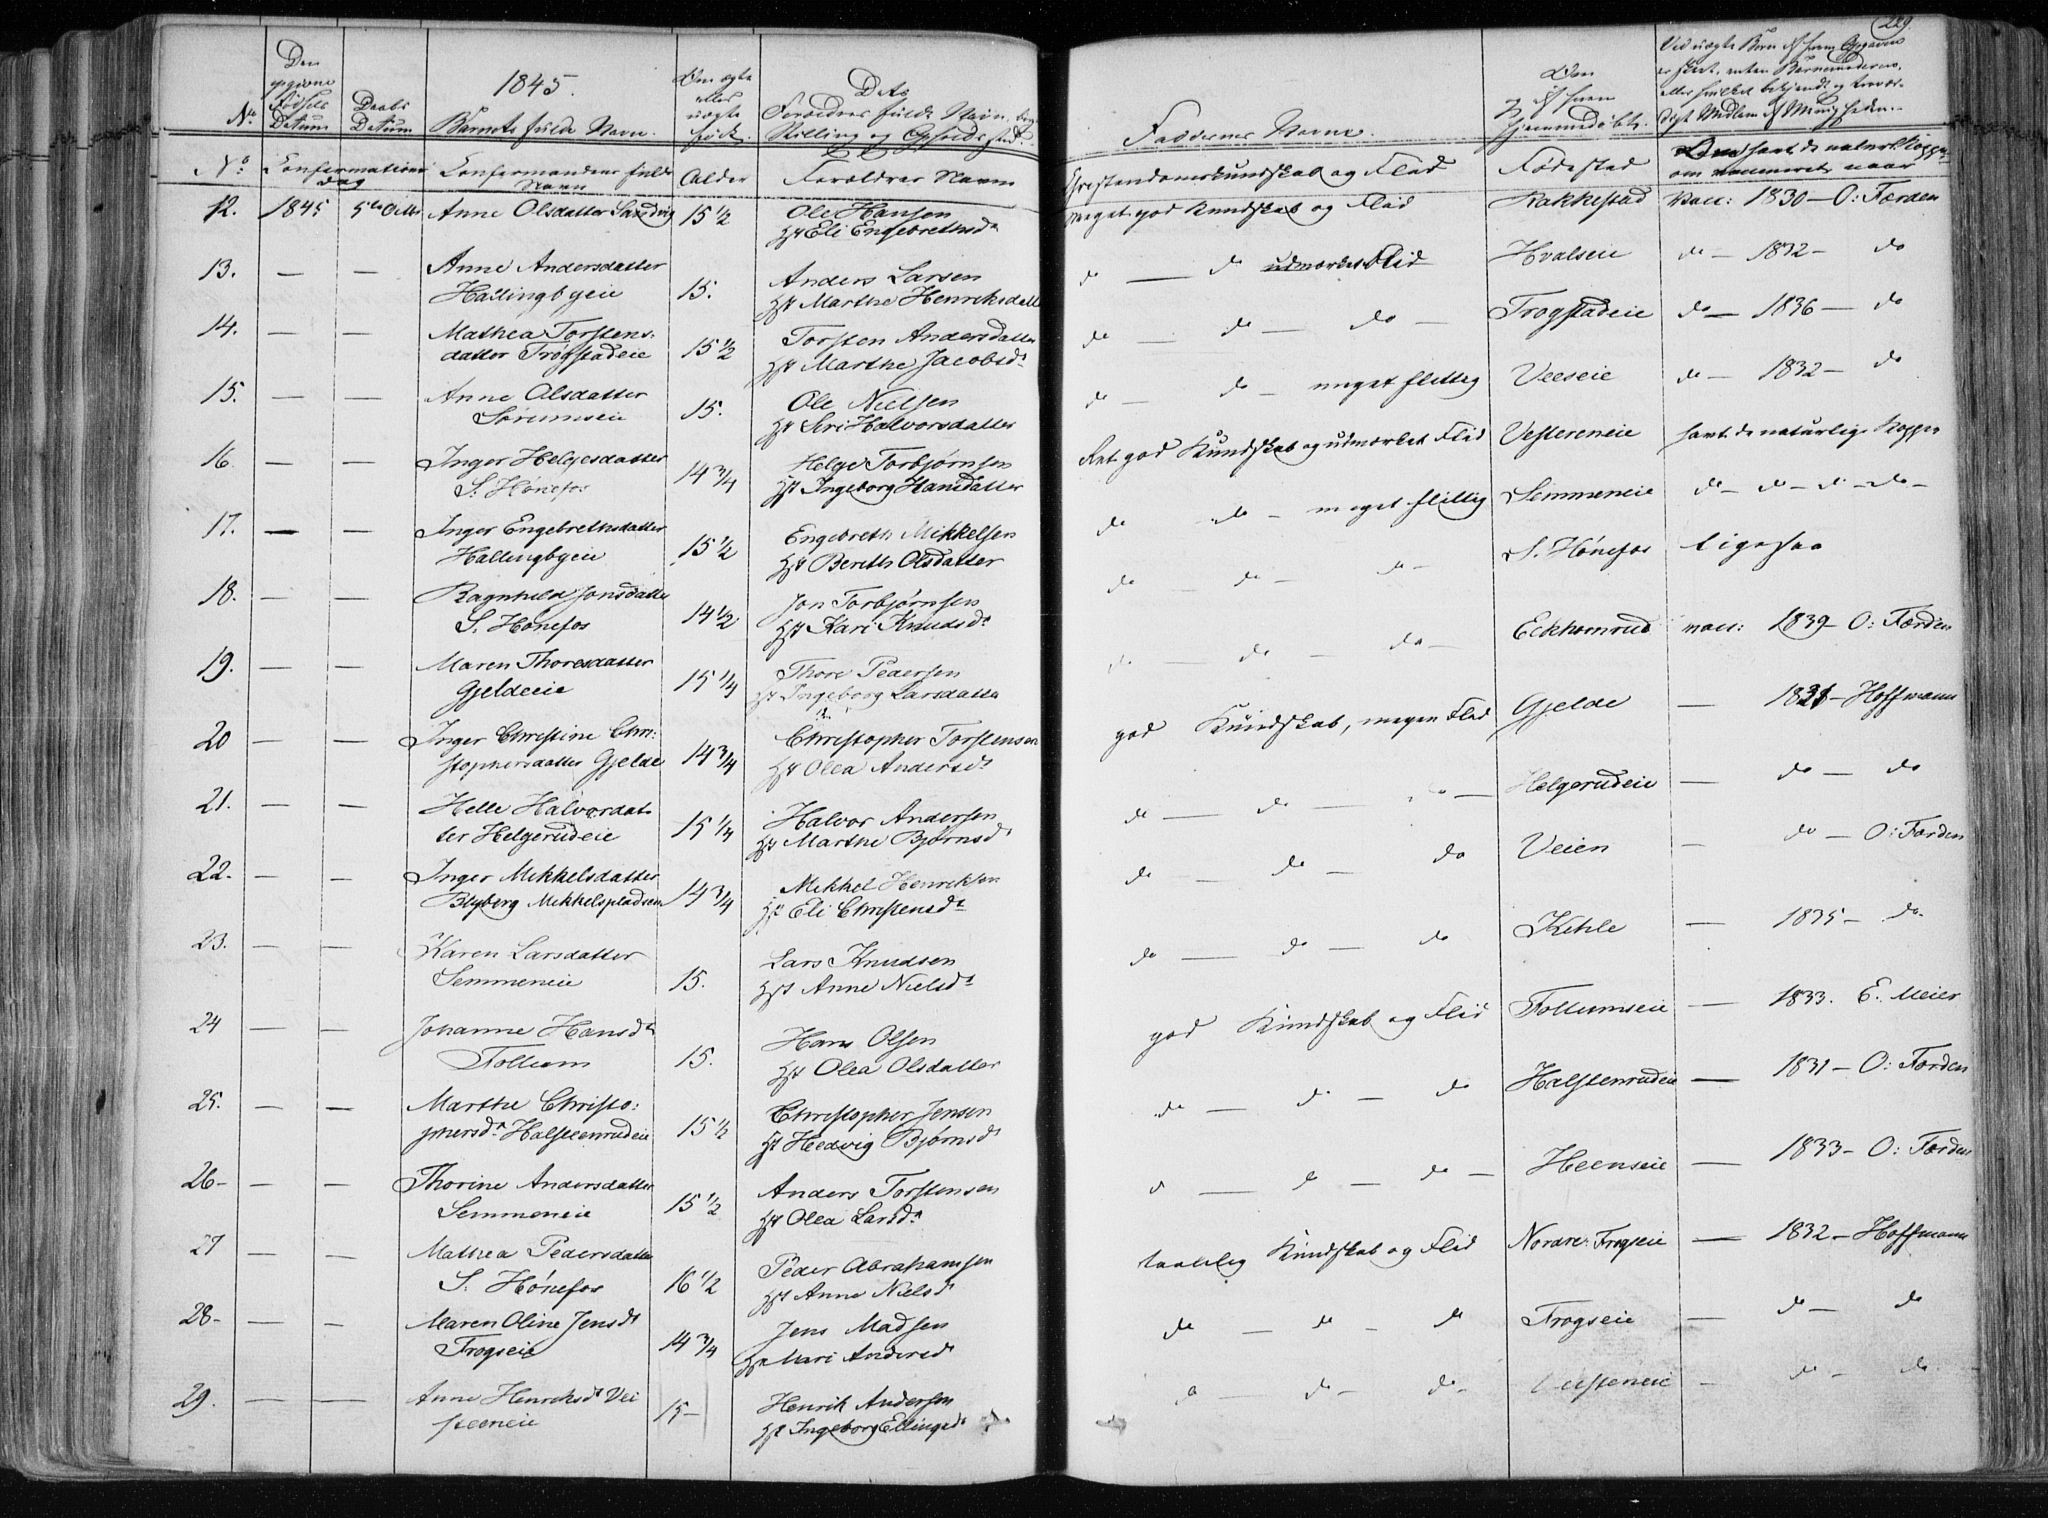 1845.
Den opgivne Fødsels Datum
Daabs Datum
No
Barnets fulde Navn.
Om ægte eller uægte født
Dets Forældres fulde Navn
Stilling og Opholdssted.
Faddernes Navne.
229.
No Confirmations dag Confirmandens fulde Navn Alder Forældres Navn Christendomskundskab og Flid Fødested
12. 1845 5te Octb Anne Olsdatter Sandvig 15 1/2 Ole Hansen
Hst Eli Engebrethsdr
meget god Kundskab og Flid Rakkestad vacc: 1830 - O: Færden
13. — — Anne Andersdatter
Hallingbyeie 15. Anders Larsen
Hst Marthe Henriksdatt
do — do udmærket Flid Hvalseie do — 1832 — do
14. — — Mathea Torstens-
datter Trøgstadeie 15 1/2 Torsten Andersdatter
Hst Marthe Jacobsdr
do do — do — Trogstadeie do — 1836 — do
15. — — Anne Olsdatter
Sørumseie 15. Ole Nielsen
Hst Siri Halvorsdatter
do — do — meget flittig Veeseie do — 1832 — do
16. — — Inger Helgesdatter
S. Hønefos 14 3/4 Helge Torbjørnsen
Hst Ingeborg Hansdatter
god Kundskab og udmærket Flid Vestereneie havt de naturlige Kopper
17. — — Inger Engebrethsdatter
Hallingbyeie 15 1/2 Engebreth Mikkelsen
Hst Bereth Olsdatter
do do — meget flittig Semmeneie do — do — d — do —
18. — — Ragnhild Jonsdatter
S. Hønefos 14 1/2 Jon Torbjørnsen
Hst Kari Knudsdr
do do — do — S. Hønefos ligesaa
19. — — Maren Thoresdatter
Gjeldeeie 15 1/4 Thore Pedersen
Hst Ingeborg Larsdatter
do do — do — Eckhornrud vacc: 1839 — O: Færden
20 — — Inger Christine Chri-
stophersdatter Gjelde 14 3/4 Christopher Torstensen
Hst Olea Andersdr
god Kundskab, megen Flid Gjelde — 1831 — Hoffmann
21. — — Helle Halvorsdat-
ter Helgerudeie 15 1/4 Halvor Andersen
Hst Marthe Bjørnsdr
do — do — do — Helgerudeie — do — do
22. — — Inger Mikkelsdatter
Blyberg Mikkelspladsen 14 3/4 Mikkel Henriksen
Hst Eli Christensdr
do — do — do Veien — do — O: Færden
23. — — Karen Larsdatter
Semmeneie 15. Lars Knudsen
Hst Anne Nielsdr
do — do — do Kihle — 1835 — do
24 — — Johanne Hansdr
Follum 15. Hans Olsen
Hst Olea Olsdatter
god Kundskab og Flid Follumseie — 1833. E. Meier
25. — — Marthe Christo-
phersdr Halsteenrudeie 15 1/2 Christopher Jensen
Hst Hedvig Bjørnsdr
do — do — do Halstenrudeie — 1831 — O: Færden
26 — — Thorine Andersdatter
Semmeneie 15 1/2 Anders Torstensen
Hst Olea Larsdr
d — d — do — Heenseie — 1833 — O: Færden
27 — — Mathea Pedersdatter
S. Hønefos 16 1/2 Peder Abrahamsen
Hst Anne Nielsdr
taalelig Kundskab og Flid Nordre: Frogseie — 1832 — Hoffmann
28 — — Maren Oline Jensdr
Frogseie 14 3/4 Jens Madsen
Hst Mari Andersdr
do — do — do Frogseie — do — do
29. — — Anne Henriksdr Vei
steeneie 15 — Henrik Andersen
Hst Ingeborg Ellingsdr
d — do — do — Veisteneie — do — do